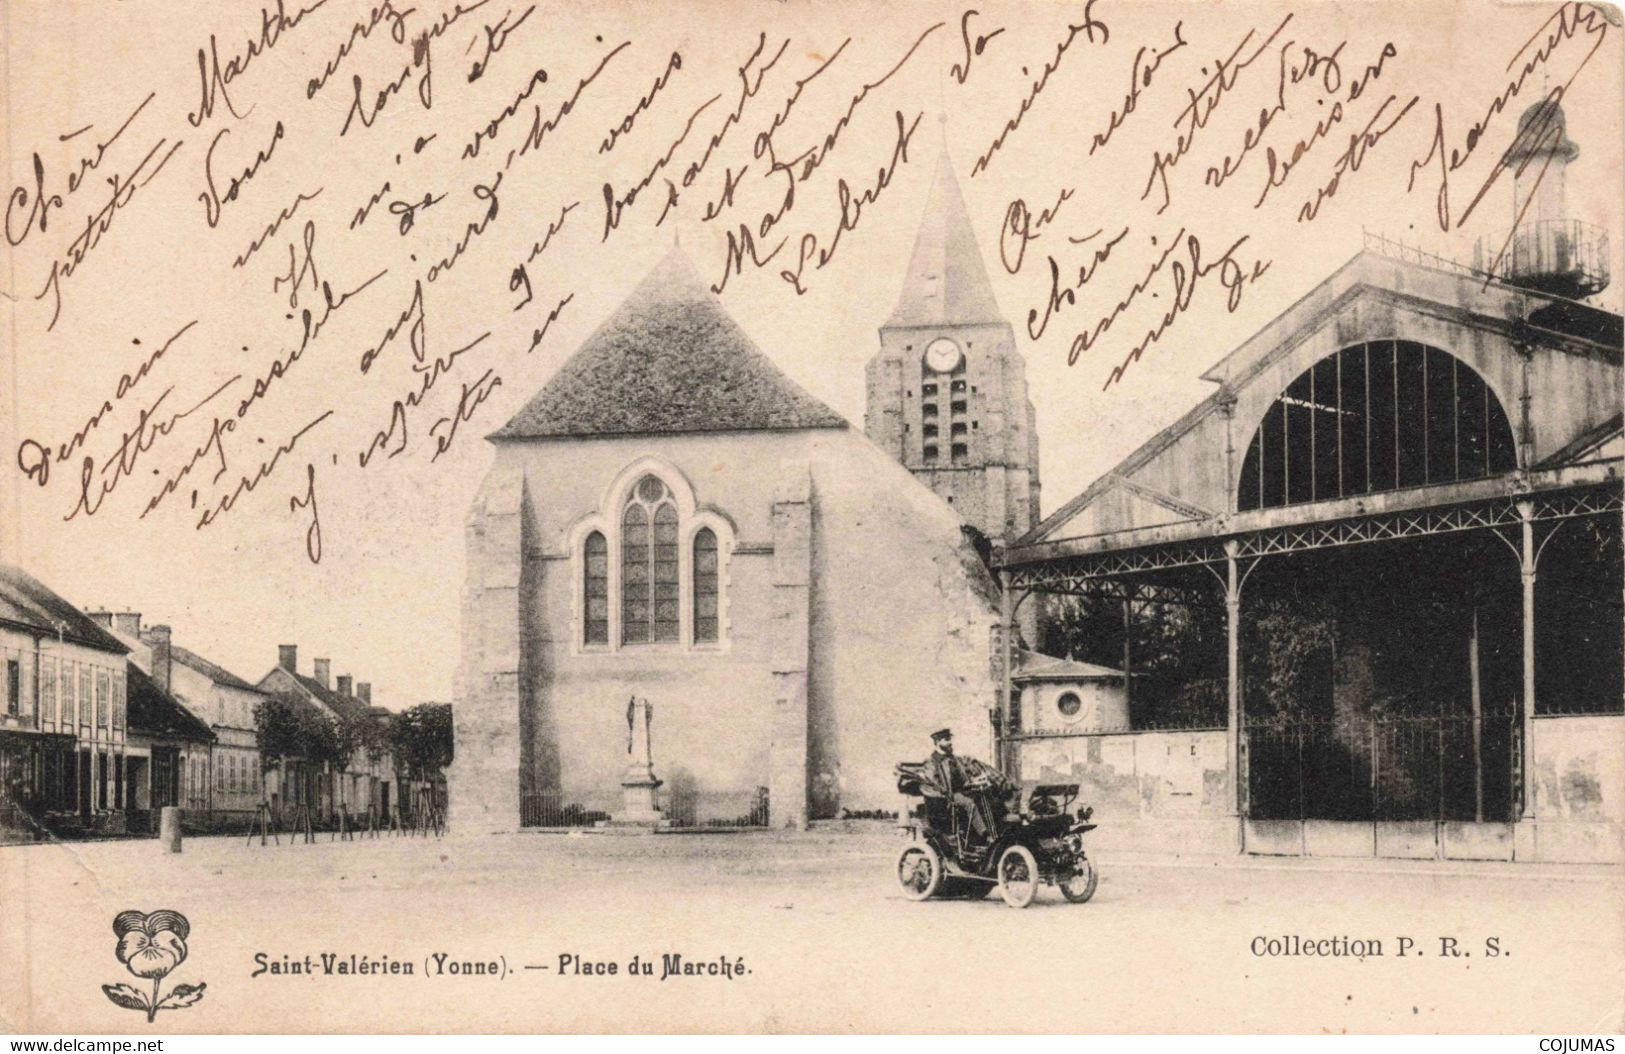 Chère
petite Marthe
Vous aurez
demain une longue
lettre Il m'a été
impossible de vous
écrire aujourd'hui
J'espère que vous
êtes en bonne
santé
et que
Madame
Lebret va
mieux
Au revoir
chère petite
amie recevez
mille baisers
de votre
Jeannette
Saint-Valérien (Yonne). — Place du Marché.
Collection P. R. S.
www.delcampe.net
COJUMAS